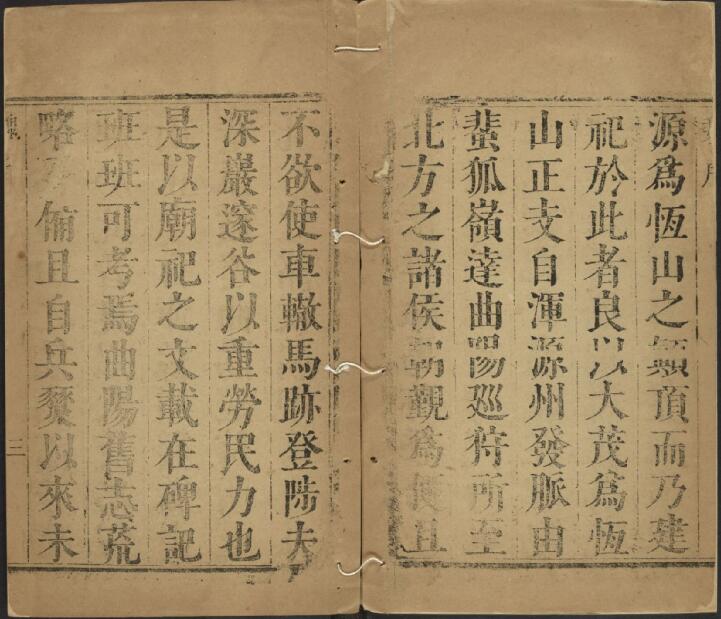 源爲恆山之巔頂而乃建
祀於此者良以大茂爲恆
山正支自渾源州發脈由
蜚狐嶺達曲陽廵狩所至
北方之諸侯朝覲爲便且
不欲使車轍馬跡登陟夫
深巖邃谷以重勞民力也
是以廟祀之文載在碑記
班班可考焉曲陽舊志荒
略 偹且自兵燹以來未
二